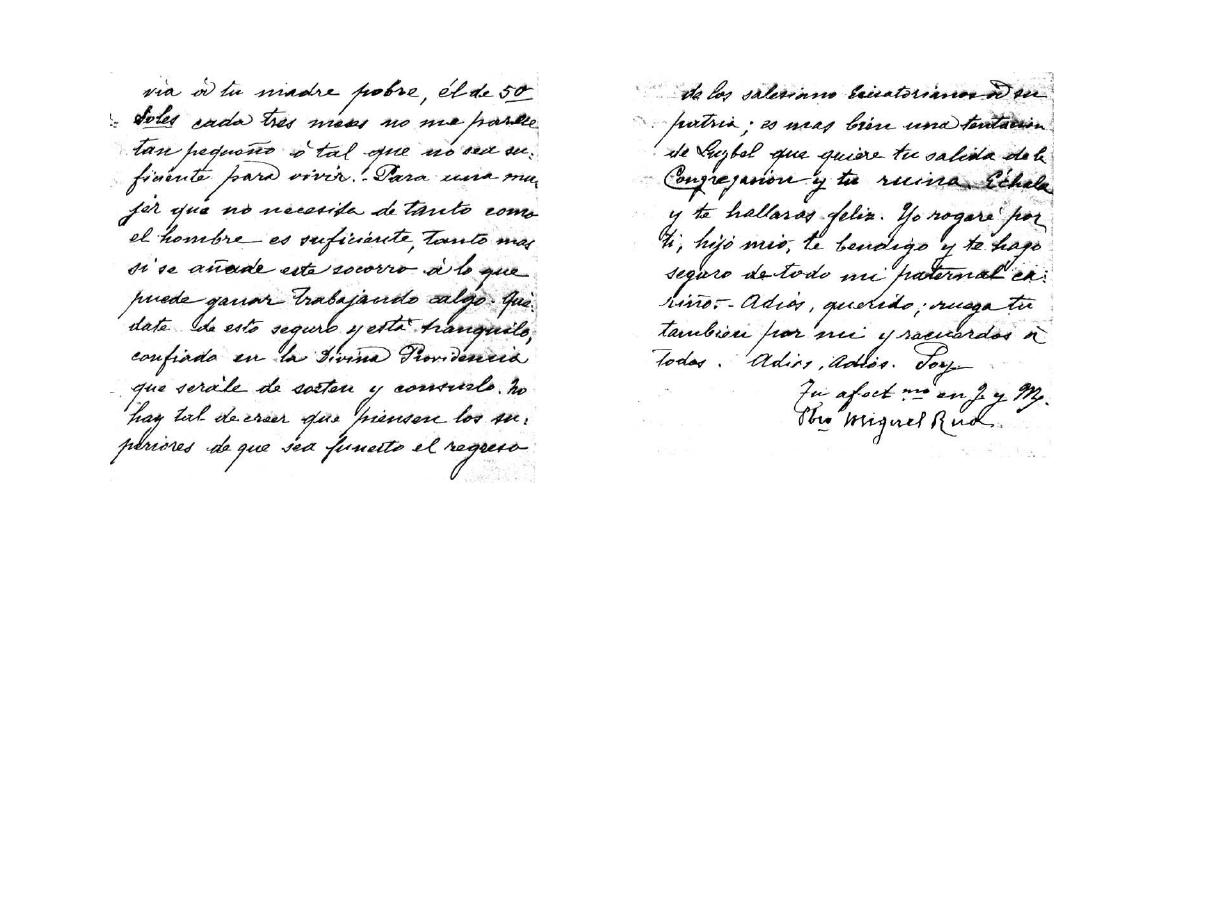 via á tu madre pobre, él de 50
Soles cada tres meses no me parece
tan pequeño ó tal que no sea su-
ficiente para vivir.- Para una mu-
jer que no necesita de tanto como
el hombre es suficiente, tanto mas
si se añade este socorro á lo que
puede ganar trabajando algo. Qué-
date de esto seguro y está tranquilo,
confiado en la Divina Providencia
que serále de sosten y consuelo. No
hay tal de creer que piensen los su-
periores de que sea funesto el regreso
de los salesiano Ecuatorianos á su
patria; es mas bien una tentacion
de Luzbel que quiere tu salida de la
Congregasion y tu ruina. Échala
y te hallaras feliz. Yo rogaré por
ti, hijo mio, te bendigo y te hago
seguro de todo mi paternal ca-
riño.- Adiós, querido; ruega tu
tambien por mi y racuerdos á
todos. Adios, Adios. Soy
Tu afect mo en J. y M.
Pbro Miguel Rua